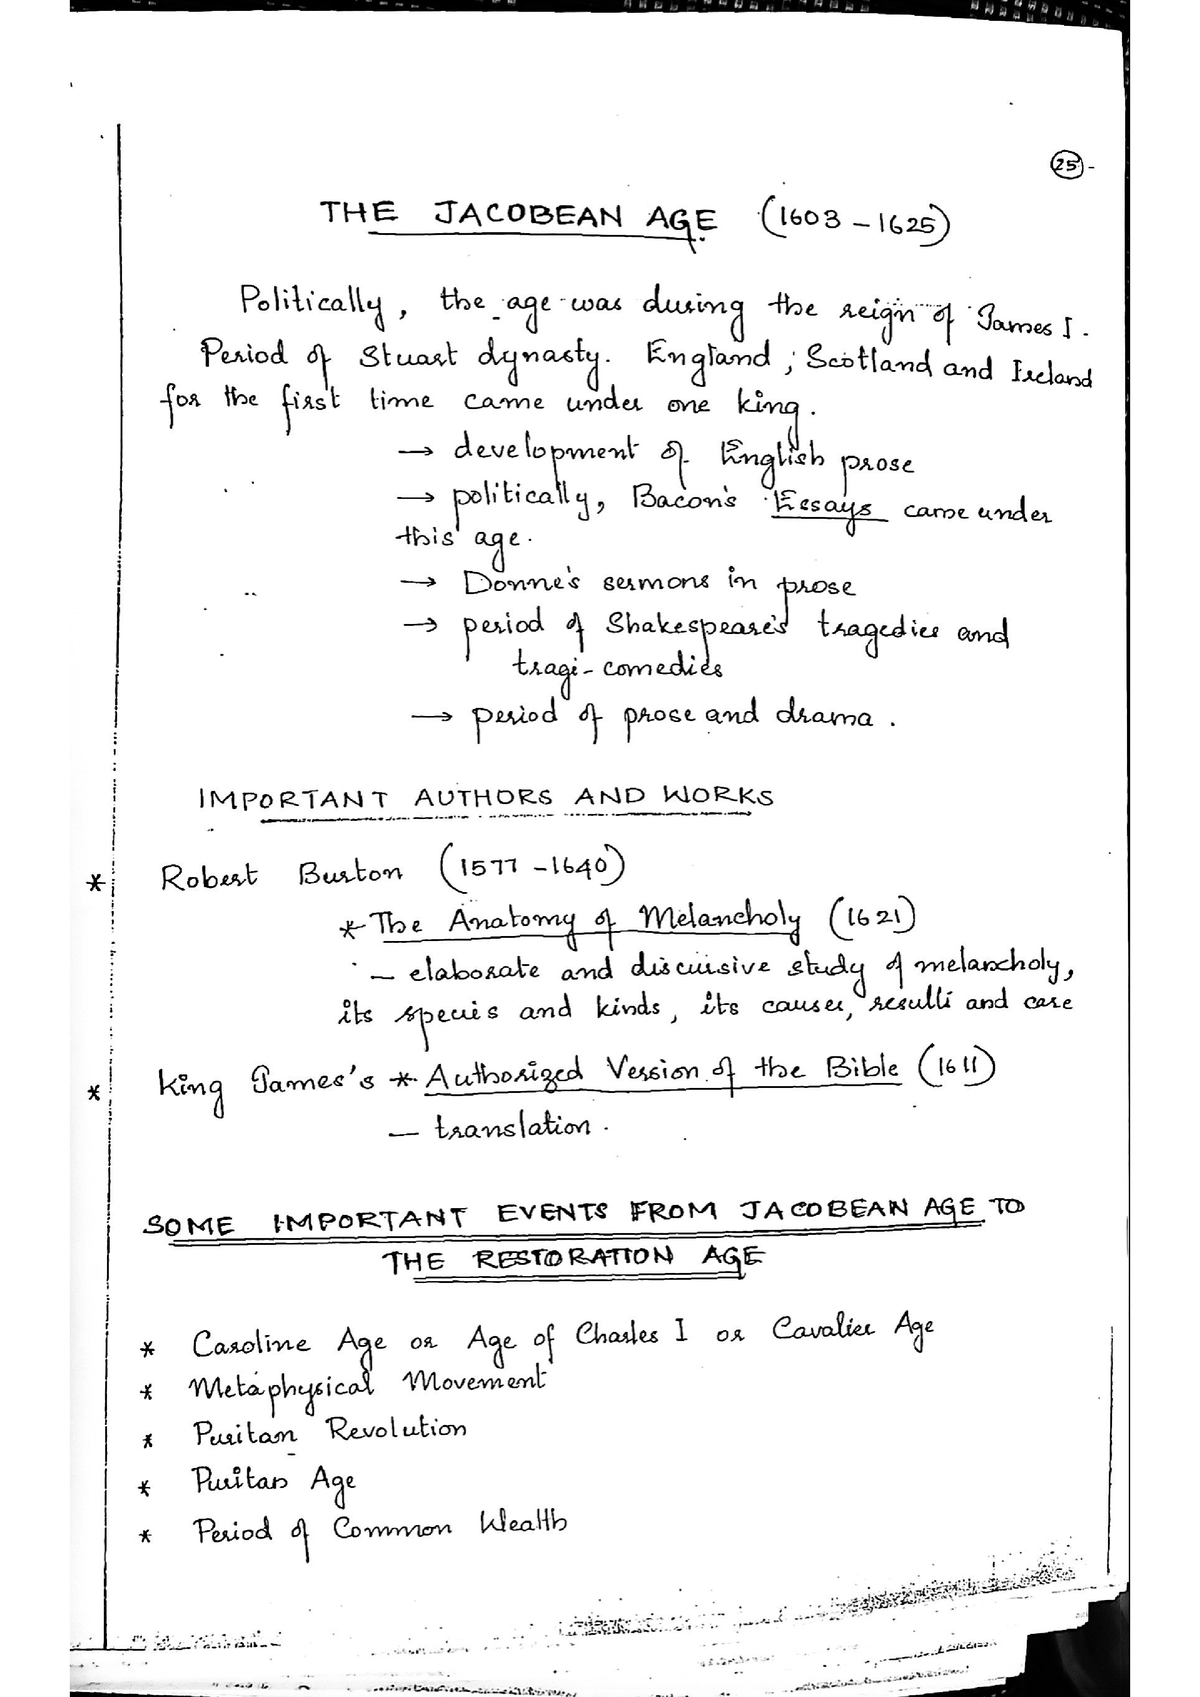 25
THE JACOBEAN AGE (1603 - 1625)
Politically, the age was during the reign of James I.
Period of Stuart dynasty. England, Scotland and Ireland
for the first time came under one king.
→ development of English prose
→ politically, Bacon's Essays came under
this age.
→ Donne's sermons in prose
→ period of Shakespeare's tragedies and
tragi-comedies
→ period of prose and drama.
IMPORTANT AUTHORS AND WORKS
* Robert Burton (1577 - 1640)
* The Anatomy of Melancholy (1621)
- elaborate and discursive study of melancholy,
its species and kinds, its causes, results and care
* King James's * Authorized Version of the Bible (1611)
- translation.
SOME IMPORTANT EVENTS FROM JACOBEAN AGE TO
THE RESTORATION AGE
* Caroline Age or Age of Charles I or Cavalier Age
* Metaphysical Movement
* Puritan Revolution
* Puritan Age
* Period of Common Wealth